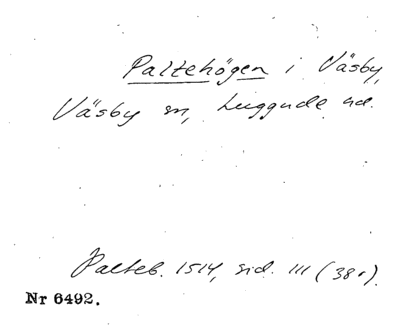 Paltehögen i Väsby,
Väsby sn, Luggude hd.
Palteb. 1514, sid. 111 (38r).
Nr 6492.